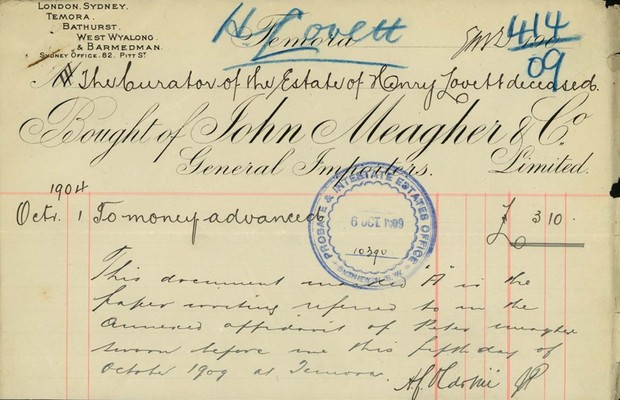 LONDON, SYDNEY,
TEMORA,
BATHURST,
WEST WYALONG
& BARMEDMAN.
SYDNEY OFFICE, 82, PITT ST
H Lovett
414
09
Temora
The Curator of the Estate of Henry Lovett deceased.
Bought of John Meagher & Co
General Importers. Limited.
1904
Octr. 1 To money advanced £ 310.
PROBATE & INTESTATE ESTATES OFFICE
6 OCT 1909
10390
SYDNEY N.S.W.
This document marked "A" is the
paper writing referred to in the
annexed affidavit of Peter Meagher
sworn before me this fifth day of
October 1909 at Temora.
JP